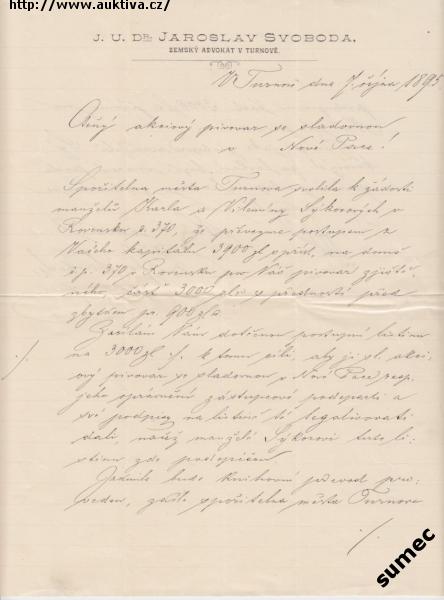 http://www.auktiva.cz/
J. U. DR. JAROSLAV SVOBODA,
ZEMSKÝ ADVOKÁT V TURNOVĚ.
V Turnově dne 7 října 1895
Ctěný akciový pivovar se sladovnou
v Nové Pace!
Spořitelna města Turnova svolila k žádosti
manželů Karla a Vilemíny Sýkorových v
Rovensku č 370, že přijme postupem z
Vašeho kapitálu 3900 zl s přísl. na domě
č.p. 370 v Rovensku pro Váš pivovar zjiště-
ného, část 3000 zl s předností před
zbytkem pr. 900 zl.
Zasílám Vám dotčenou postupní listinu
na 3000 zl k tomu cíli, aby ji sl. akci-
ový pivovar se sladovnou v Nové Pace, resp.
jeho oprávnění zástupcové podepsali a
své podpisy na listině té legalisovati
dali, načež manželé Sýkorovi tuto li-
stinu zde podepíší.
Jakmile bude knihovní převod pro-
veden, zašle spořitelna města Turnova
./.
./.
sumec